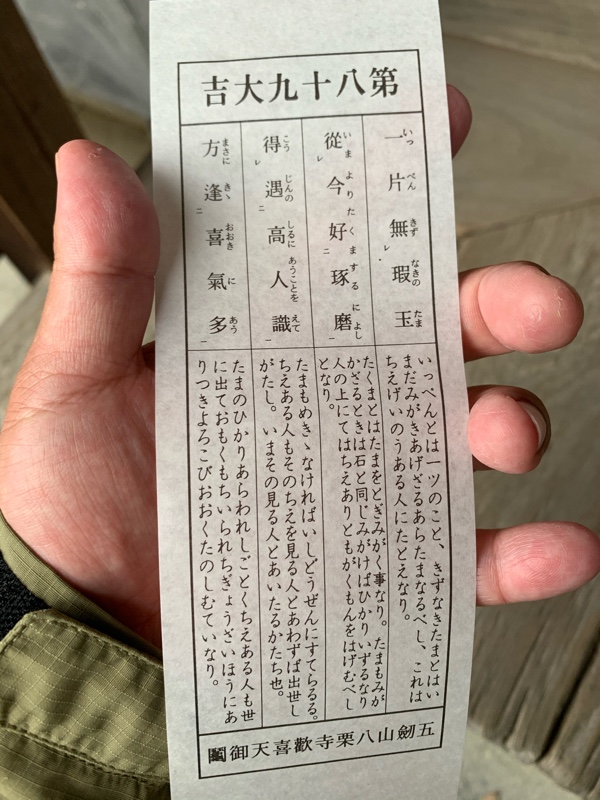 第八十九大吉
一片無瑕玉
いっぺんきずなきのたま
いっぺんとは一ツのこと、きずなきたまとはい
まだみがきあげざるあらたまなるべし、これは
ちえげいのうある人にたとえなり。
從今好琢磨
いまよりたくまするによし
たくまとはたまをとぎみがく事なり。たまもみが
かざるときは石と同じみがけばひかりいずるなり
人の上にてはちえありともがくもんをはげむべし
となり。
得遇高人識
こうじんのしるにあうことをえて
たまもめきゝなければいしどうぜんにすてらるる。
ちえある人もそのちえを見る人とあわずば出世し
がたし。いまその見る人とあいたるかたち也。
方逢喜氣多
まさにきゝおおきにあう
たまのひかりあらわれしごとくちえある人も世
に出ておもくもちいられちぎょうざいほうにあ
りつきよろこびおおくたのしむていなり。
五劔山八栗寺歡喜天御鬮